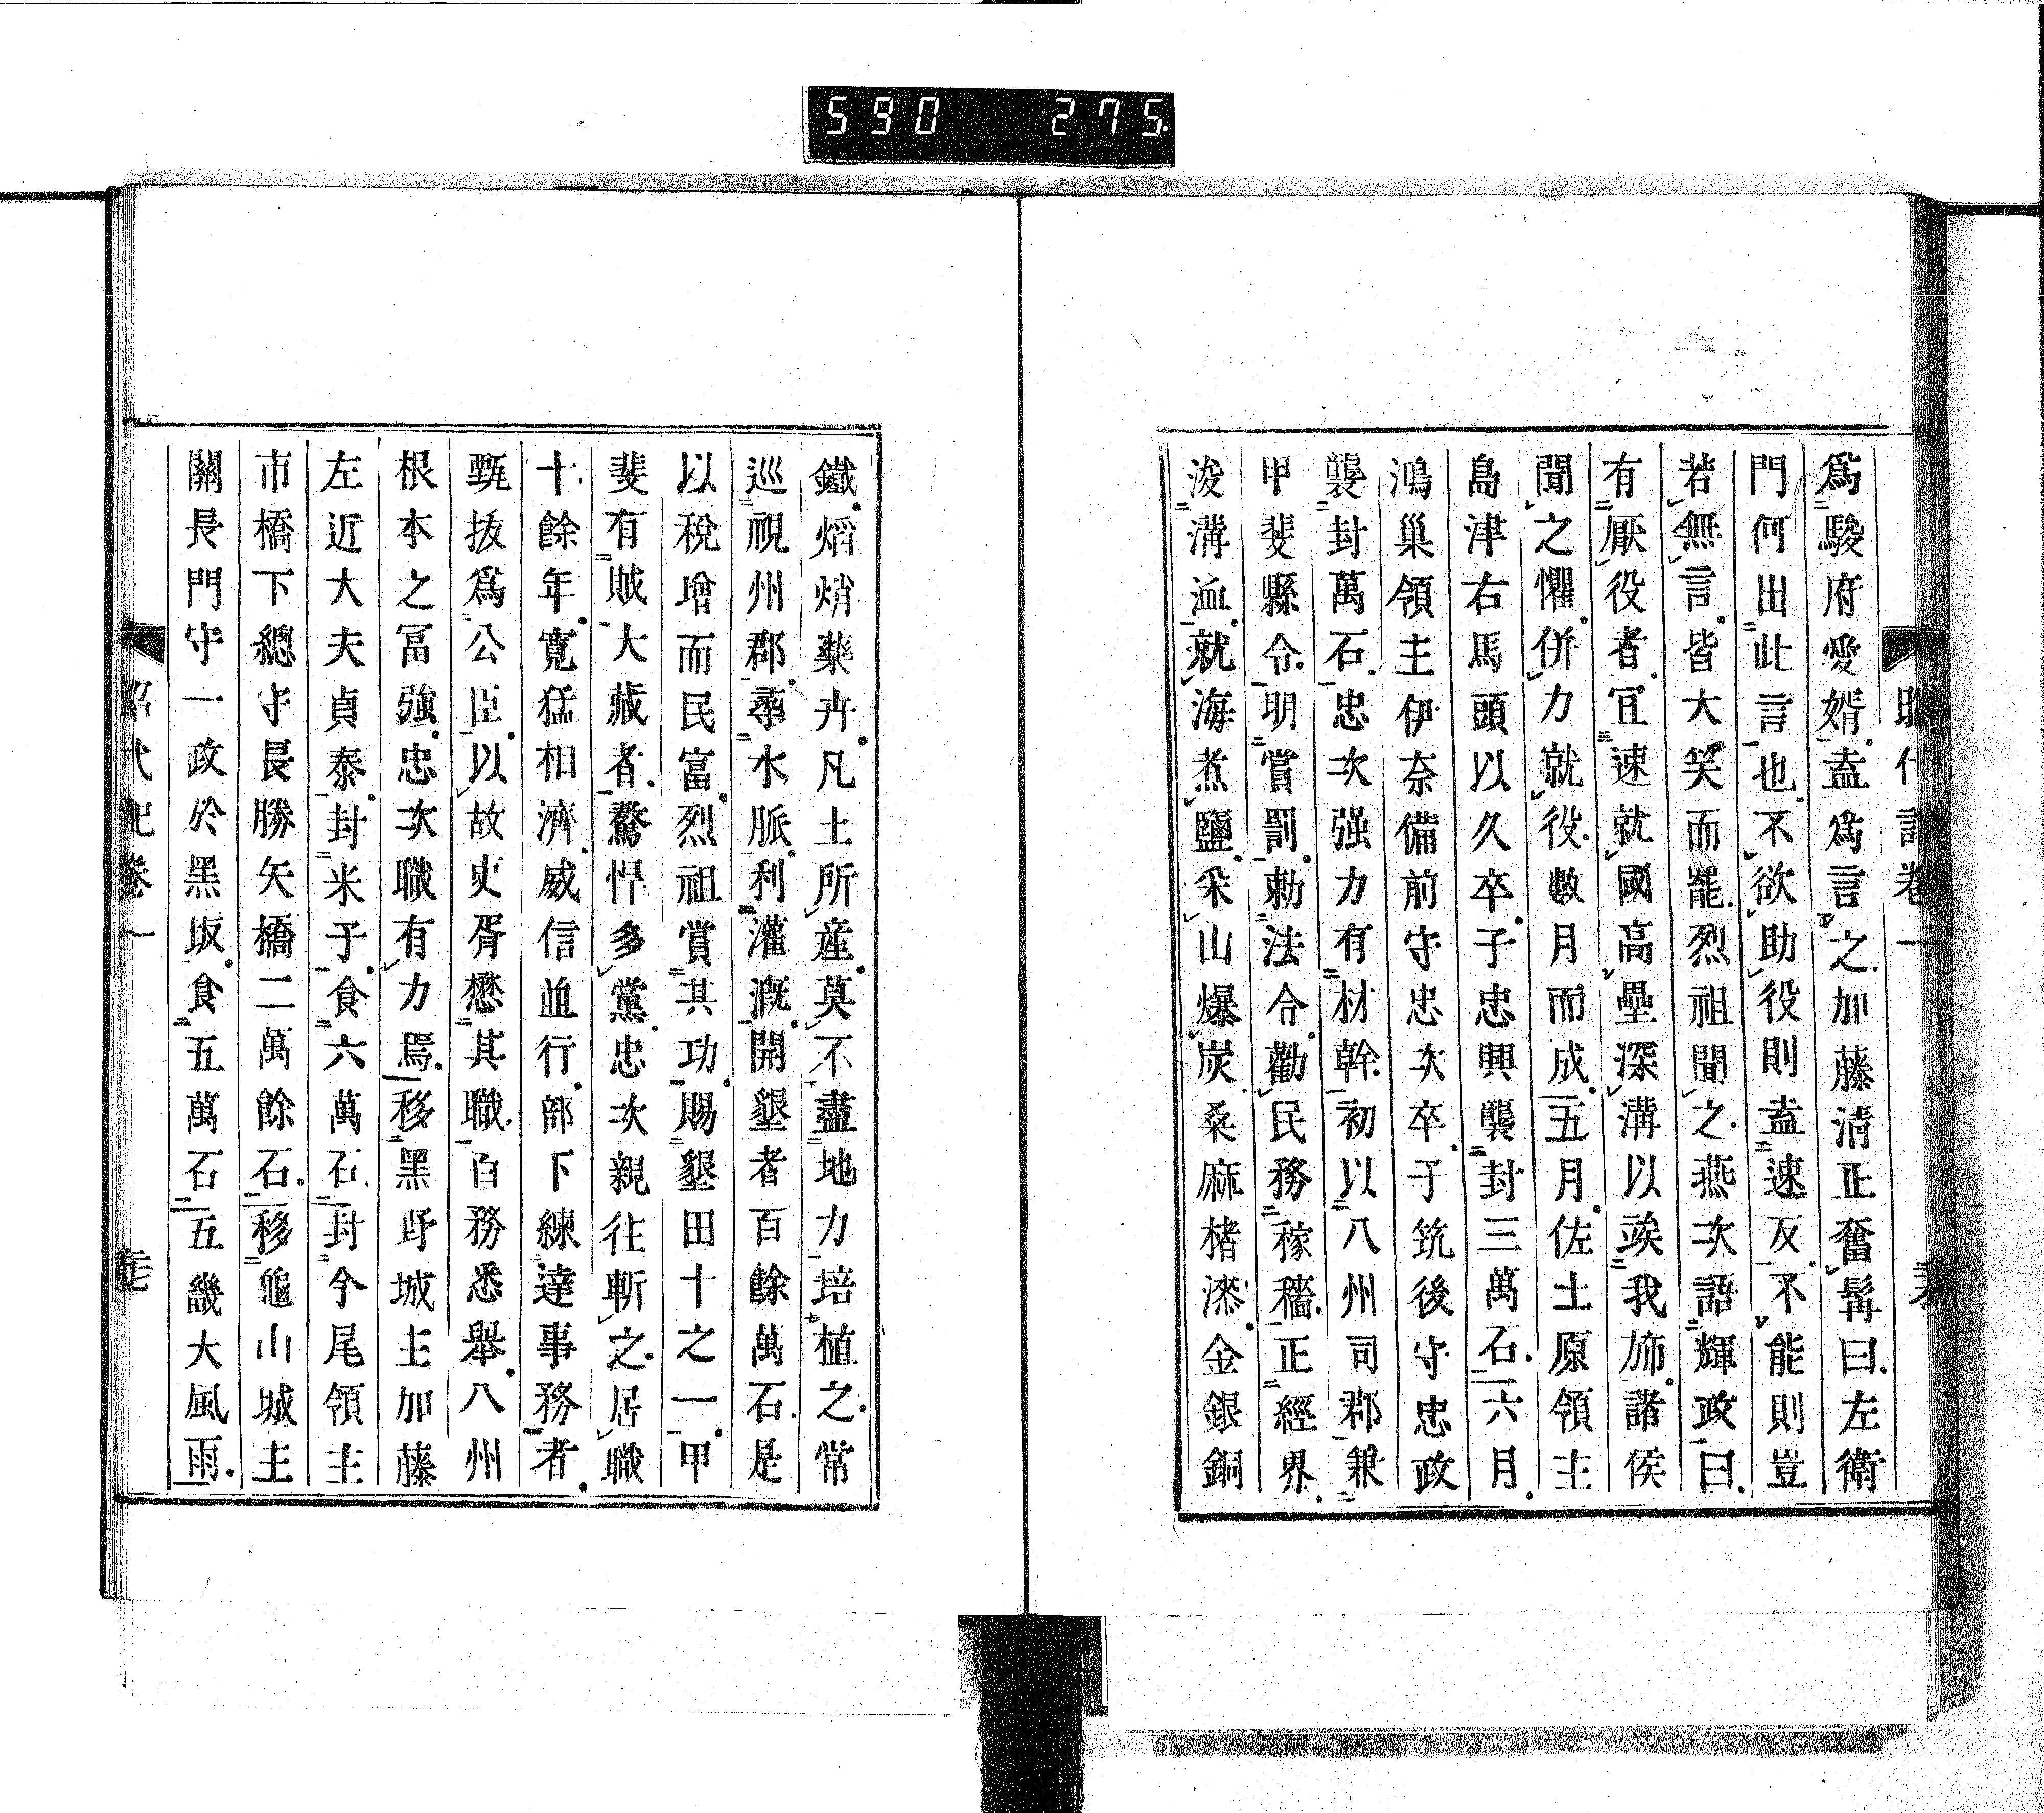 590 275
昭代記卷一
爲駿府愛婿盍爲言之加藤清正奮髯曰左衛
門何出此言也不欲助役則盍速反不能則豈
若無言皆大笑而罷烈祖聞之燕次語輝政曰
有厭役者宜速就國高壘深溝以竢我斾諸侯
聞之懼併力就役數月而成五月佐土原領主
島津右馬頭以久卒子忠興襲封三萬石六月
鴻巢領主伊奈備前守忠次卒子筑後守忠政
襲封萬石忠次强力有材幹初以八州司郡兼
甲斐縣令明賞罰勅法令勸民務稼穡正經界
浚溝洫就海煮鹽采山爆炭桑麻楮漆金銀銅
鐵熖焇藥卉凡土所産莫不盡地力培植之常
巡視州郡尋水脈利灌漑開墾者百餘萬石是
以稅增而民富烈祖賞其功賜墾田十之一甲
斐有賊大藏者驁悍多黨忠次親往斬之居職
十餘年寬猛相濟威信並行部下練達事務者
甄拔爲公臣以故吏胥懋其職百務悉舉八州
根本之冨強忠次職有力焉移黑野城主加藤
左近大夫貞泰封米子食六萬石封今尾領主
市橋下總守長勝矢橋二萬餘石移龜山城主
關長門守一政於黑坂食五萬石五畿大風雨
昭代記卷一